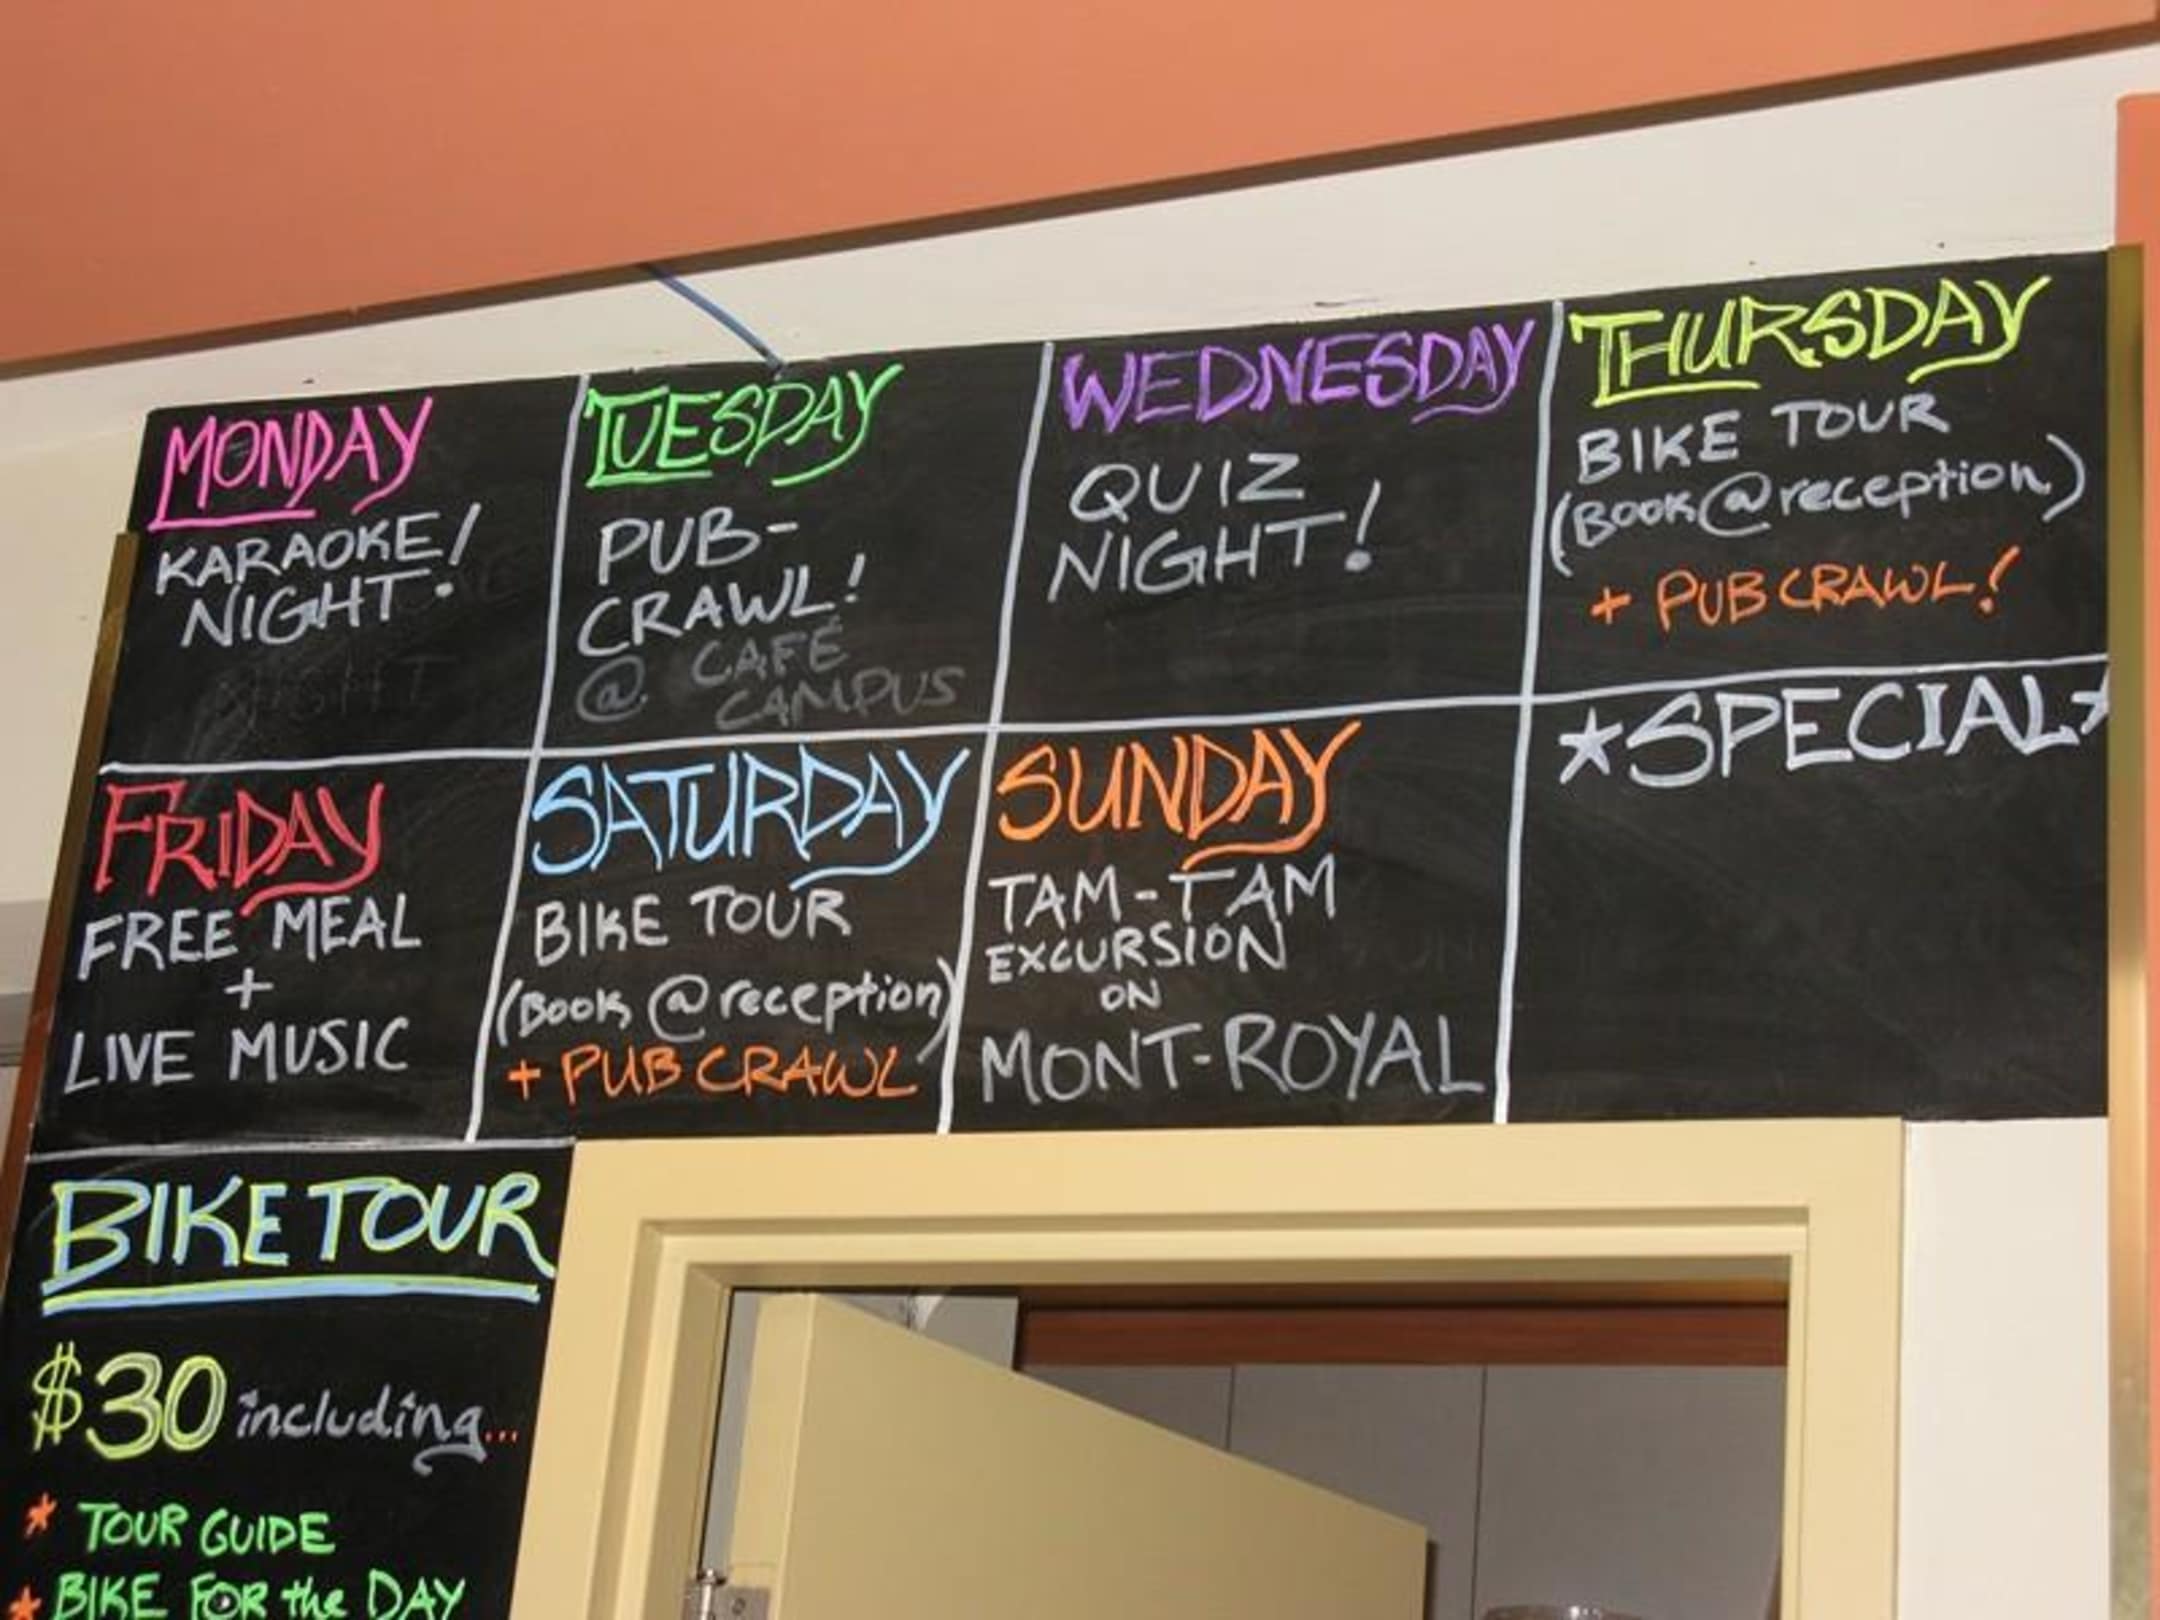 MONDAY
KARAOKE!
NIGHT.
TUESDAY
PUB-
CRAWL!
@ CAFÉ
CAMPUS
WEDNESDAY
QUIZ
NIGHT!
THURSDAY
BIKE TOUR
(BOOK @ reception)
+ PUB CRAWL!
FRIDAY
FREE MEAL
+
LIVE MUSIC
SATURDAY
BIKE TOUR
(BOOK @ reception)
+ PUB CRAWL
SUNDAY
TAM-TAM
EXCURSION
ON
MONT-ROYAL
*SPECIAL*
BIKE TOUR
$30 including...
* TOUR GUIDE
* BIKE FOR the DAY